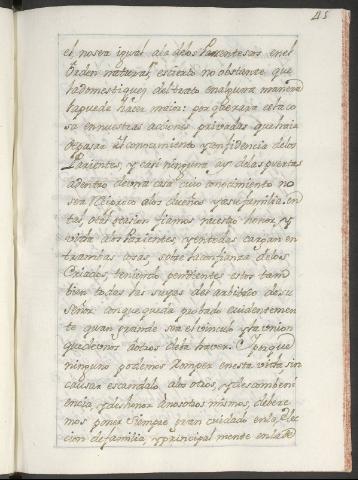 45
el no sera igual ala delos Parentescos en el
Orden natural, es cierto no obstante que
la domestiquez del trato en alguna manera
la puede hacer maior: por que rara es la co
sa en nuestras acciones privadas que haia
de pasar el conocimiento y confidencia delos
Parientes, y casi ninguna ay delas puertas
adentro de una casa cuio conocimiento no
sea reciproco alos dueños y a su familia, en
tas, ocasion fiamos nuestro honor, y
vida alos Parientes, y en todas cargan en
trambas cosas, sobre la confianza delos
Criados, teniendo pendientes estos tam
bien todas las suyas del arbitrio de su
Señor con que queda probado evidentemen
te quan grande sea el vinculo y la union
que de unos a otros deba haver. Y en que
ninguno podemos romper en esta vida, sin
causar escandalo alos otros, y desconveni
encia, y deshonor a nosotros mismos, debere
mos poner siempre gran cuidado en la elec
cion de familia, y principalmente en la de